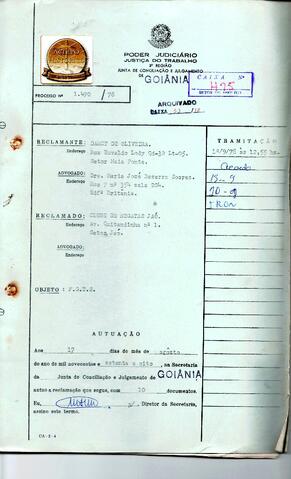 PODER JUDICIÁRIO
JUSTIÇA DO TRABALHO
3ª REGIÃO
JUNTA DE CONCILIAÇÃO E JULGAMENTO
DE GOIÂNIA
CAIXA
Nº 475
PROCESSO Nº 1.470 / 78
ARQUIVADO
CAIXA
RECLAMANTE: DARCY DE OLIVEIRA.
Endereço
Setor Meia Ponte.
ADVOGADO: Dra. Maria José Bezerra Soares.
Endereço Rua 7 nº 354 sala 204.
Edfº Britania.
RECLAMADO: CLUBE DE REGATAS JAÓ.
Endereço Av. Quitandinha nº 1.
Setor Jaó.
ADVOGADO:
Endereço
OBJETO: F.G.T.S.
TRAMITAÇÃO
14/9/78 às 12,55 hs.
AUTUAÇÃO
Aos 17 dias do mês de agosto
do ano de mil novecentos e setenta e oito, na Secretaria
da Junta de Conciliação e Julgamento de GOIÂNIA
autuo a reclamação que segue, com 10 documentos.
Eu, Diretor da Secretaria,
assino este termo.